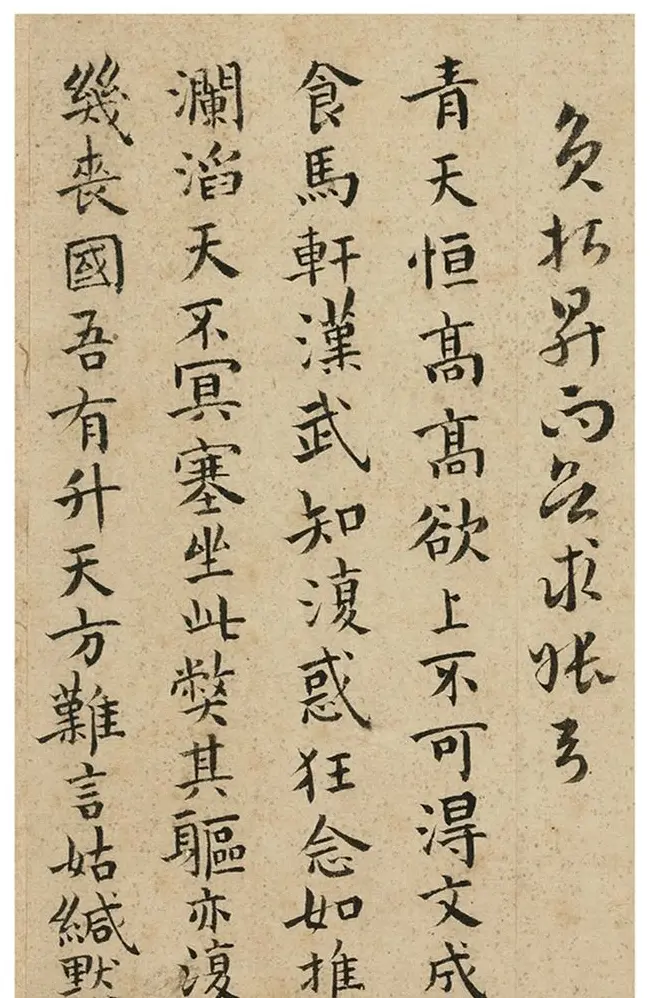 昇而求
青天恒高高欲上不可得文成
食馬軒漢武知復惑狂念如推
瀾滔天不冥塞坐此獘其軀亦復
幾喪國吾有升天方難言姑緘默